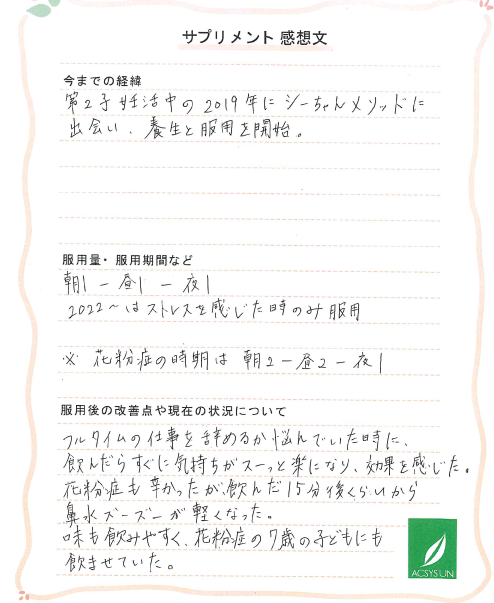 サプリメント 感想文
今までの経緯
第2子妊活中の2019年にシーちゃんメソッドに
出会い、養生と服用を開始。
服用量・服用期間など
朝1 - 昼1 - 夜1
2022~はストレスを感じた時のみ服用
※ 花粉症の時期は 朝2-昼2-夜1
服用後の改善点や現在の状況について
フルタイムの仕事を辞めるか悩んでいた時に、
飲んだらすぐに気持ちがスーッと楽になり、効果を感じた。
花粉症も辛かったが、飲んだ15分後くらいから
鼻水ズーズーが軽くなった。
味も飲みやすく、花粉症の7歳の子どもにも
飲ませていた。
ACSYSUN